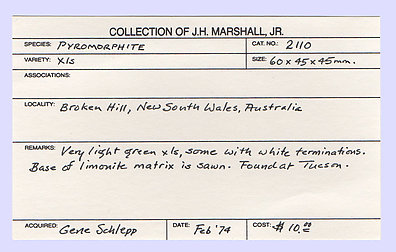 COLLECTION OF J.H. MARSHALL, JR.
SPECIES: PYROMORPHITE CAT. NO.: 2110
VARIETY: xls SIZE: 60 x 45 x 45 mm.
ASSOCIATIONS:
LOCALITY: Broken Hill, New South Wales, Australia
REMARKS: Very light green xls, some with white terminations.
Base of limonite matrix is sawn. Found at Tucson.
ACQUIRED: Gene Schlepp DATE: Feb '74 COST: $10.00